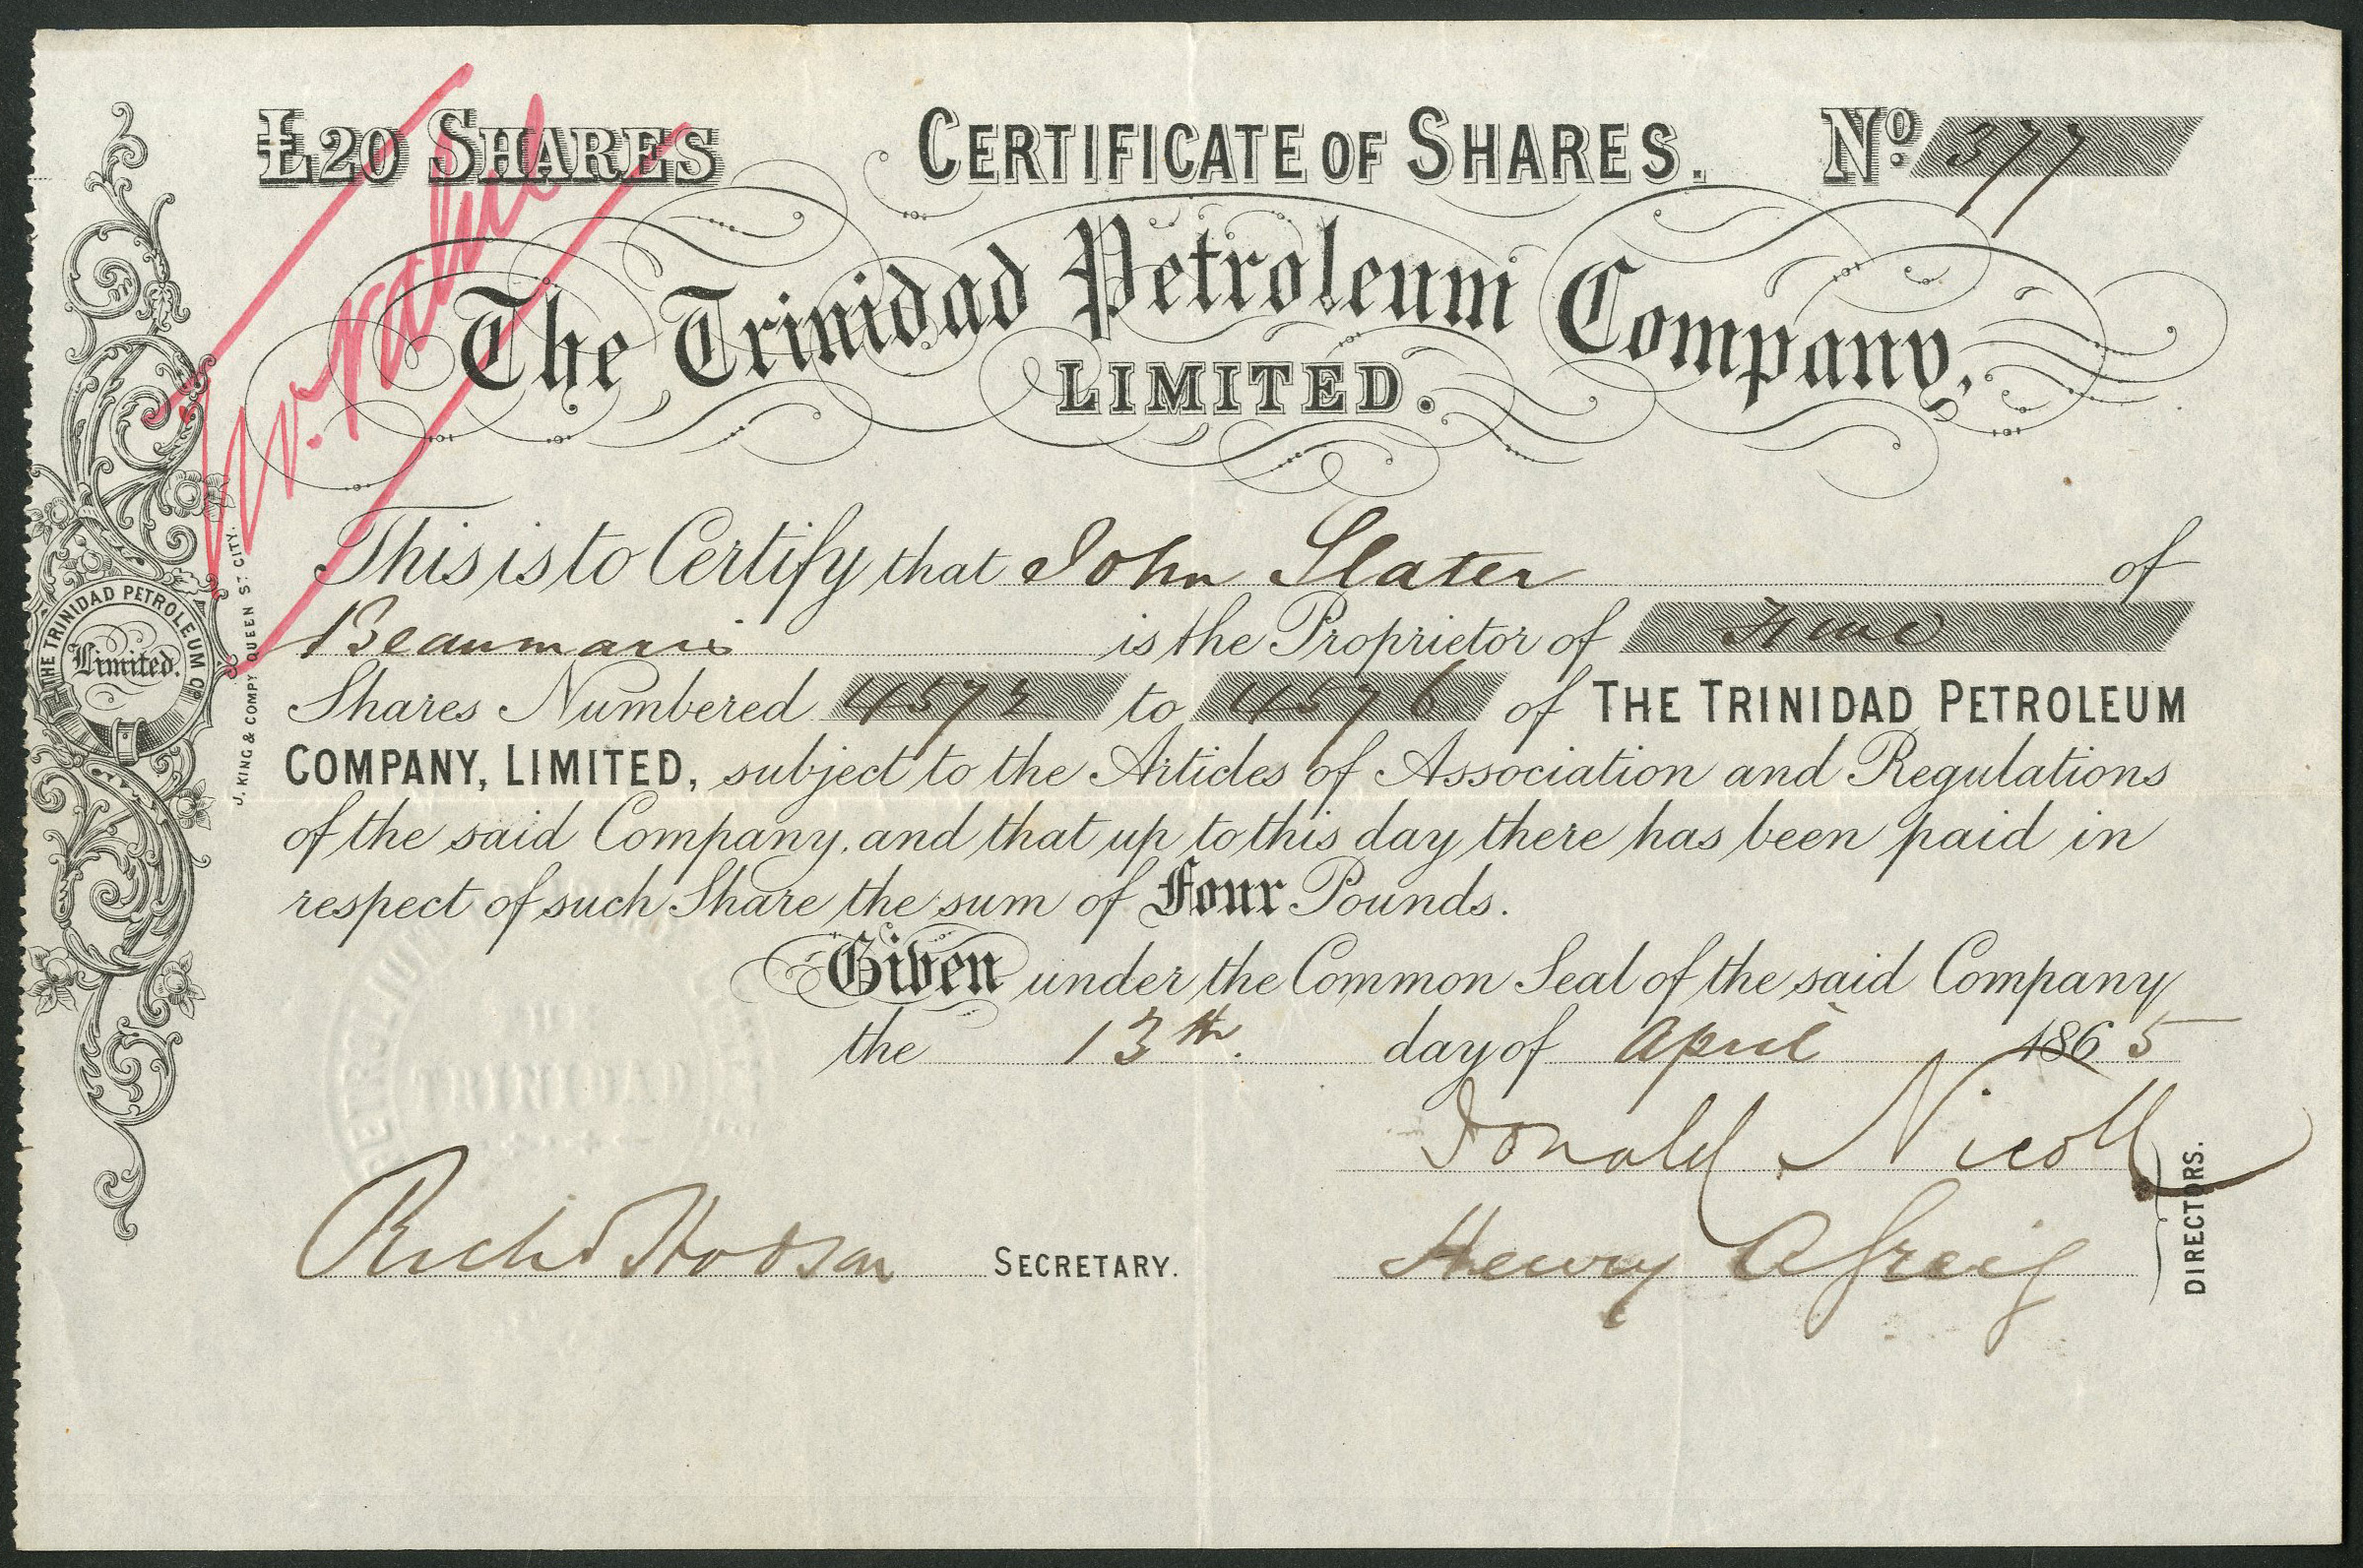 £20 SHARES CERTIFICATE OF SHARES. No. 377
No value
The Trinidad Petroleum Company,
LIMITED.
This is to Certify that John Slater of
Beaumaris is the Proprietor of Five
Shares Numbered 4572 to 4576 of THE TRINIDAD PETROLEUM
COMPANY, LIMITED, subject to the Articles of Association and Regulations
of the said Company, and that up to this day there has been paid in
respect of such Share the sum of Four Pounds.
Given under the Common Seal of the said Company
the 13th. day of April 1865
Donald Nicoll
Richd Hodson SECRETARY. Henry A Greig
DIRECTORS.
THE TRINIDAD PETROLEUM CO.
Limited.
J. KING & COMPY. QUEEN ST. CITY.
TRINIDAD